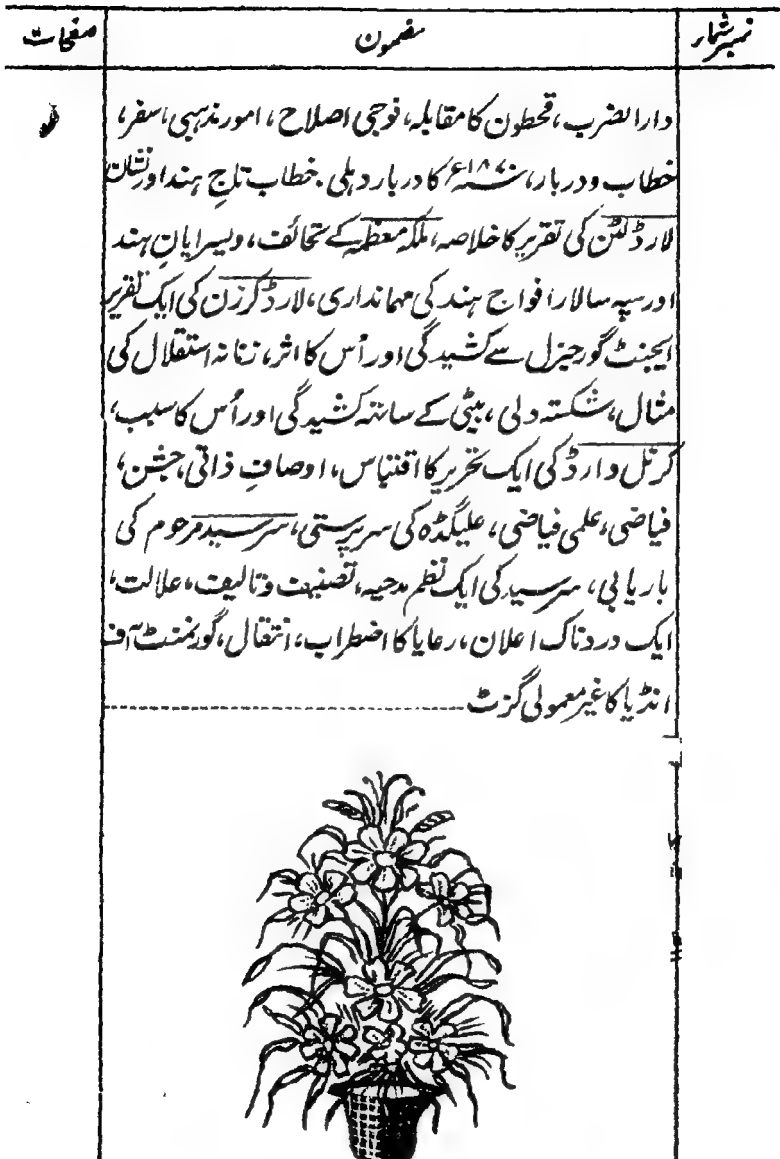 نمبر شمار مضمون صفحات
دارالضرب، قحطون کا مقابلہ، فوجی اصلاح، امور مذہبی، سفر،
خطاب و دربار، ۱۸۷۷ء کا دربار دہلی. خطاب تاجِ ہند اور نشان
لارڈ لٹن کی تقریر کا خلاصہ، ملکہ معظمہ کے تحائف، ویسرایانِ ہند
اور سپہ سالار افواج ہند کی مہمانداری، لارڈ کرزن کی ایک تقریر
ایجنٹ گورجنرل سے کشیدگی اور اُس کا اثر، زنانہ استقلال کی
مثال، شکستہ دلی، بیٹی کے ساتھ کشیدگی اور اُس کا سبب،
کرنل وارڈ کی ایک تحریر کا اقتباس، اوصافِ ذاتی، جشن،
فیاضی، علمی فیاضی، علیگڈہ کی سرپرستی، سرسید مرحوم کی
باریابی، سرسید کی ایک نظم مدحیہ، تصنیف و تالیف، علالت،
ایک دردناک اعلان، رعایا کا اضطراب، انتقال، گورنمنٹ آف
انڈیا کا غیر معمولی گزٹ